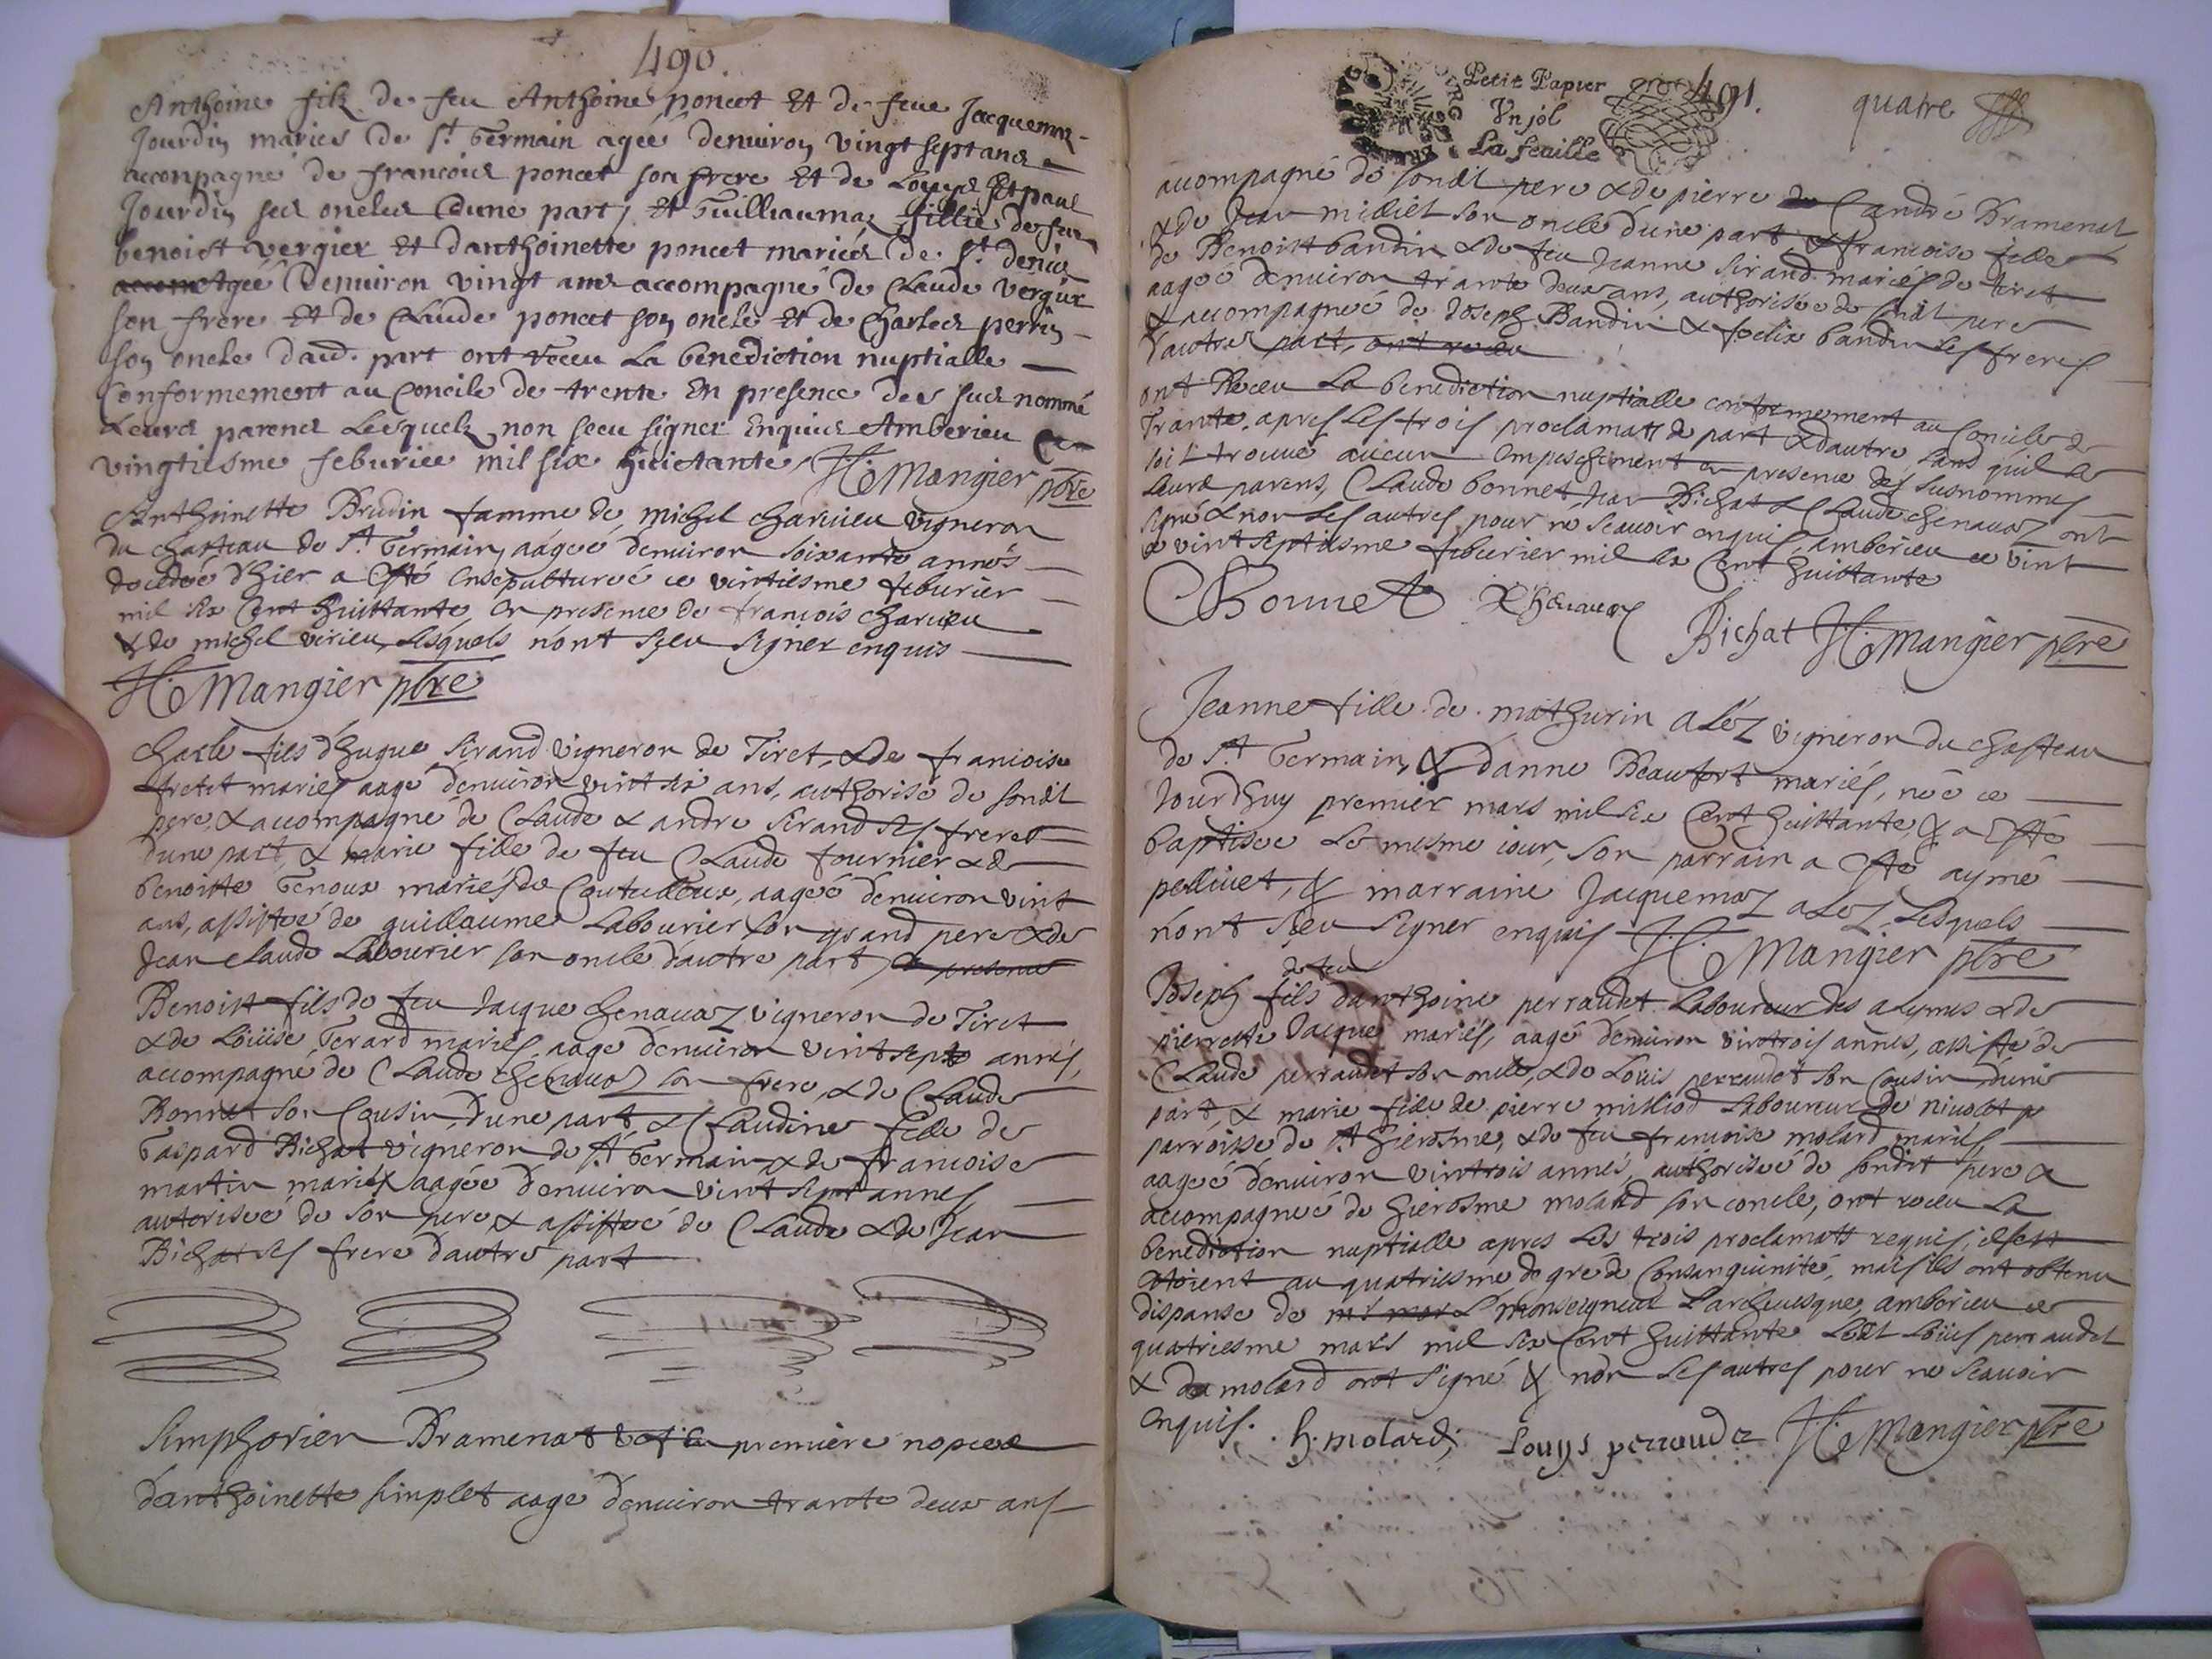 490.
Anthoine filz de feu Anthoine poncet Et de feue Jacquemaz
Jourdin mariés de st Germain agéé denuiron vingt sept ans
accompagné de francois poncet son frere Et de Louys Et paul
Jourdin ses oncles dune part, Et Guilliauma fillie de feu
benoist vergier Et danthoinette poncet mariés de st denis
Agéé Denuiron vingt ans accompagné de Claude vergier
son frere Et de Claude poncet son oncle Et de Charles perrin
son oncle daud. part ont receu La benediction nuptialle
Conformement au Concile de trente En presence des sus nommé
Leurs parens Lesquelz non sceu signer Enquis Amberieu Ce
vingtiesme feburier mil six huictante H. Mangier pbre
Anthoinette Brudin famme de michel charuieu vigneron
du chasteau de st Germain, aagéé denuiron soixante annés
décédéé d'hier a esté ensepulturéé ce vintiesme feburier
mil six Cent huittante en presence de françois charuieu
& de michel verieu, lesquels n'ont sceu signer enquis
H. Mangier pbre
Charle fils d'hugue sirand vigneron de Tiret, & de francoise
fretet mariés aagé denuiron vint six ans, authorisé de sondit
pere, & accompagné de Claude & andre sirand ses freres
dune part, & marie fille de feu Claude fournier & de
benoitte Genoux mariés de Coutelieux, aagéé denuiron vint
ans, assistéé de guillaume Labourier son grand pere & de
Jean claude Labourier son oncle d'autre part, en presence
Benoist fils de feu Jacque chenauaz vigneron de Tiret
& de Loüise Gerard mariés, aagé denuiron vint sept annés,
accompagné de Claude chenauaz son frere, & de Claude
Bonnet son Cousin, dune part, & Claudine fille de
Gaspard Bichat vigneron de st Germain & de francoise
martin mariés aagéé denuiron vint sept annés
autoriséé de son pere & assistéé de Claude & de Jean
Bichat ses frere d'autre part
Simphorien Bramenat premiere nopces
danthoinette simplet aage denuiron trante deux ans
Petit Papier
Vn sol
La feuille
491.
quatre
accompagné de sondit pere & de pierre Candé Bramenat
& de Jean milliet son oncle dune part, & francoise fille
de Benoist bandin & de feu Jeanne sirand mariés de tiret
aagéé denuiron trante deux ans, authoriséé de sondit pere
& accompagnéé de Joseph Bandin & foelix bandin ses freres
d'autre part, ont receu
ont Receu La benediction nuptialle conformement au Concile de
Trante, apres les trois proclamatt de part & dautre, sans quil se
soit trouué aucun empeschement en presence des susnommes
Leurs parens, Claude bonnet, Jean Bichat & Claude chenauaz ont
signé & non les autres pour ne scauoir enquis, amberieu ce vint
& vint septiesme feburier mil six Cent huittante
CBonnet Chenauaz
Bichat H. Mangier pbre
Jeanne fille de mathurin alez vigneron du chasteau
de st Germain, & d'anne Beaufort mariés, néé ce
Jourdhuy premier mars mil six Cent huittante, & a esté
baptisée le mesme iour, son parrain a esté aymé
pelliuet, & marraine Jacquemaz alez, Lesquels
n'ont sceu signer enquis H. Mangier pbre
de feu
Joseph fils d'anthoine perraudet Laboureur des alymes & de
pierrette Jacque mariés, aagé denuiron vintrois annés, assisté de
Claude perraudet son oncle, & de Loüis perraudet son Cousin dune
part, & marie fille de pierre milliod Laboureur de niuolet
parroisse de st hierosme, & de feu francoise molard mariés
aagéé denuiron vintrois annés, authoriséé de sondit pere &
accompagnéé de hierosme molard son oncle, ont receu La
benediction nuptialle apres les trois proclamatt requis, ils
estoient au quatriesme degré de Consanguinité, mais ils ont obtenu
dispanse de Monseigneur L'archeuesque, amberieu ce
quatriesme mars mil six Cent huittante Ledit Loüis perraudet
& du molard ont signé & non les autres pour ne scauoir
enquis. h. molard, Louys perraudet H. Mangier pbre